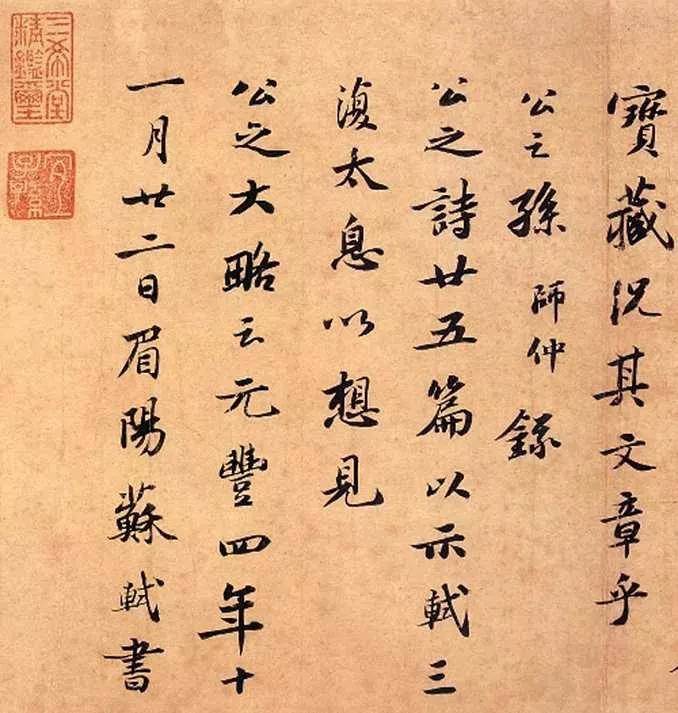 寶藏况其文章乎
公之孫師仲錄
公之詩廿五篇以示軾三
復太息以想見
公之大略云元豐四年十
一月廿二日眉陽蘇軾書
三希堂
精鑑璽
宜子
孫